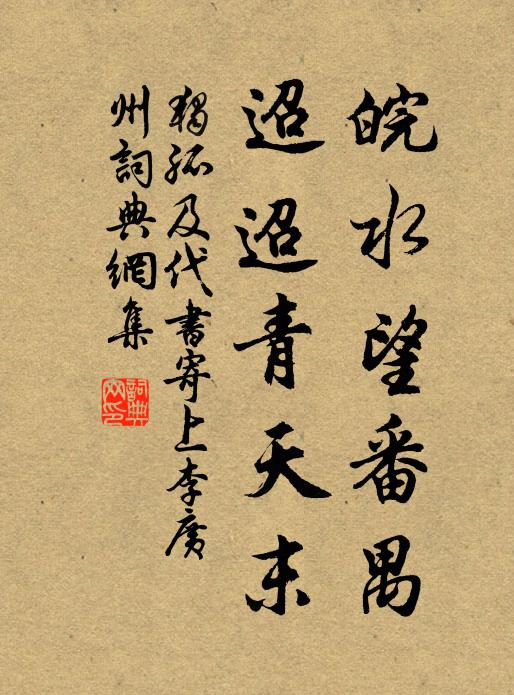 皖水望番禺
迢迢青天末
獨孤及代書寄上李廣
州詞典網集
詞典網印